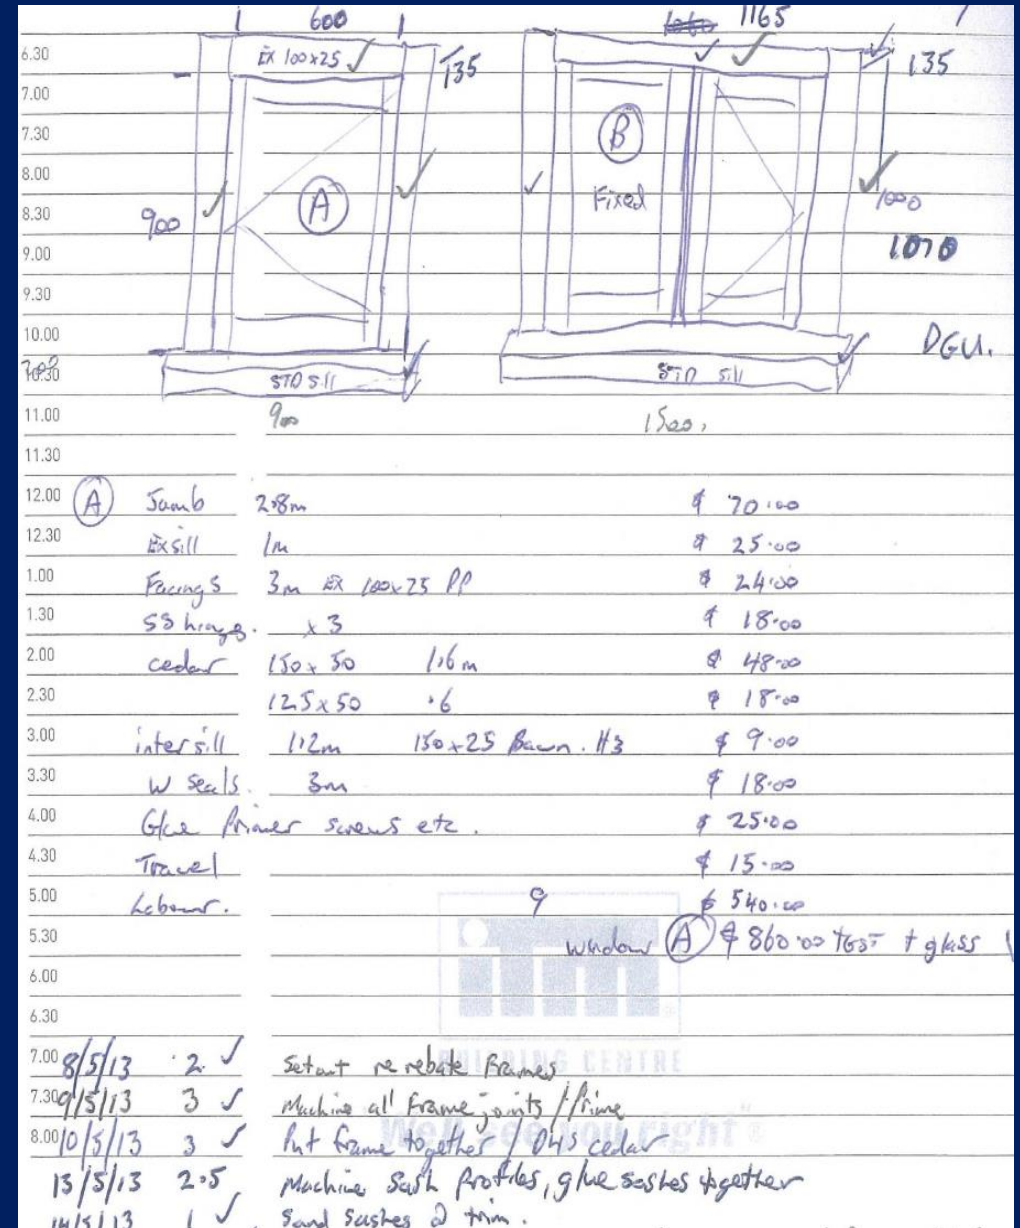 600 1165
6.30 Ex 100x25 135 135
7.00
7.30 B
8.00 Fixed
8.30 900 A 1000
9.00 1070
9.30
10.00 DGU.
10.30 STD Sill STD Sill
11.00 900 1500.
11.30
12.00 A Jamb 2.8m $ 70.00
12.30 Ex sill 1m $ 25.00
1.00 Facings 3m Ex 100x25 PP $ 24.00
1.30 SS hinges. x 3 $ 18.00
2.00 cedar 150x50 1.6m $ 48.00
2.30 125x50 .6 $ 18.00
3.00 inter sill 1.2m 150x25 H3 $ 9.00
3.30 W Seals. 3m $ 18.00
4.00 Glue Primer screws etc. $ 25.00
4.30 Travel $ 15.00
5.00 Labour. 9 $ 540.00
5.30 window A $ 860.00 + GST + glass
6.00 itm
6.30
7.00 8/5/13 2 Setout re rebate frames
BUILDING CENTRE
7.30 9/5/13 3 Machine all frame joints / Prime
8.00 10/5/13 3 Put frame together / D4S cedar
We'll see you right
13/5/13 2.5 Machine Sash Profiles, glue sashes together
14/5/13 1 Sand Sashes & trim.